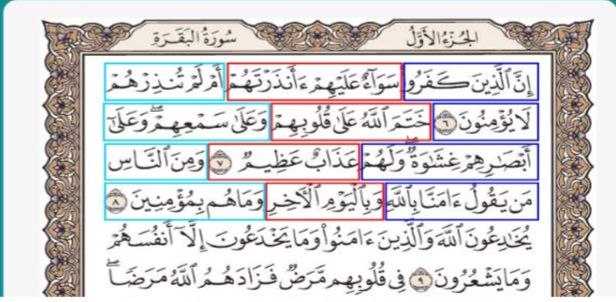 الجُزْءُ الأَوَّلُ سُورَةُ البَقَرَةِ
إِنَّ ٱلَّذِينَ كَفَرُوا۟ سَوَآءٌ عَلَيْهِمْ ءَأَنذَرْتَهُمْ أَمْ لَمْ تُنذِرْهُمْ
لَا يُؤْمِنُونَ ٦ خَتَمَ ٱللَّهُ عَلَىٰ قُلُوبِهِمْ وَعَلَىٰ سَمْعِهِمْ ۖ وَعَلَىٰٓ
أَبْصَـٰرِهِمْ غِشَـٰوَةٌ ۖ وَلَهُمْ عَذَابٌ عَظِيمٌ ٧ وَمِنَ ٱلنَّاسِ
مَن يَقُولُ ءَامَنَّا بِٱللَّهِ وَبِٱلْيَوْمِ ٱلْـَٔاخِرِ وَمَا هُم بِمُؤْمِنِينَ ٨
يُخَـٰدِعُونَ ٱللَّهَ وَٱلَّذِينَ ءَامَنُوا۟ وَمَا يَخْدَعُونَ إِلَّآ أَنفُسَهُمْ
وَمَا يَشْعُرُونَ ٩ فِى قُلُوبِهِم مَّرَضٌ فَزَادَهُمُ ٱللَّهُ مَرَضًا ۖ